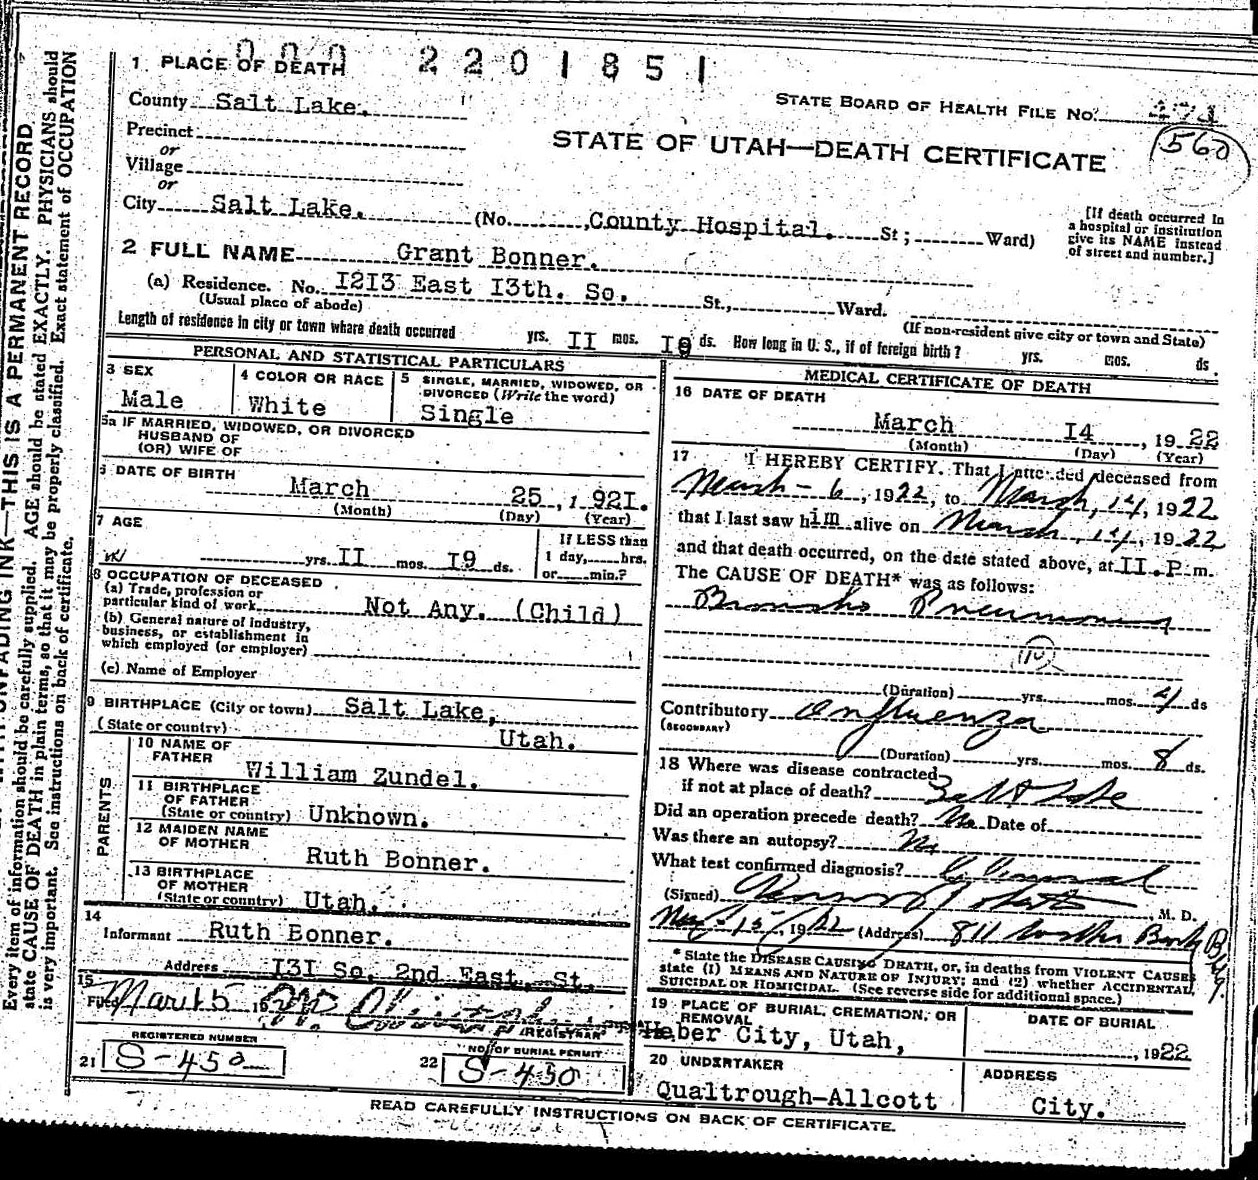 000 2201851
1 PLACE OF DEATH
County Salt Lake.
STATE BOARD OF HEALTH FILE No.
Precinct
or
Village
or
STATE OF UTAH—DEATH CERTIFICATE
560
City Salt Lake. (No. , County Hospital. St; Ward)
[If death occurred in
a hospital or institution
give its NAME instead
of street and number.]
2 FULL NAME Grant Bonner.
(a) Residence. No. I2I3 East I3th. So. St., Ward.
(Usual place of abode)
(If non-resident give city or town and State)
Length of residence in city or town where death occurred yrs. II mos. I9 ds. How long in U. S., if of foreign birth? yrs. mos. ds.
PERSONAL AND STATISTICAL PARTICULARS
3 SEX
Male
4 COLOR OR RACE
White
5 SINGLE, MARRIED, WIDOWED, OR
DIVORCED (Write the word)
Single
5a IF MARRIED, WIDOWED, OR DIVORCED
HUSBAND OF
(OR) WIFE OF
6 DATE OF BIRTH
March 25, 1921.
(Month) (Day) (Year)
7 AGE
yrs. II mos. I9 ds.
If LESS than
1 day, hrs.
or min.?
8 OCCUPATION OF DECEASED
(a) Trade, profession or
particular kind of work Not Any. (Child)
(b) General nature of industry,
business, or establishment in
which employed (or employer)
(c) Name of Employer
9 BIRTHPLACE (City or town) Salt Lake,
(State or country) Utah.
PARENTS
10 NAME OF
FATHER
William Zundel.
11 BIRTHPLACE
OF FATHER
(State or country) Unknown.
12 MAIDEN NAME
OF MOTHER
Ruth Bonner.
13 BIRTHPLACE
OF MOTHER
(State or country) Utah.
14
Informant Ruth Bonner.
Address I3I So. 2nd East, St.
15
Filed Mar 15 192
REGISTRAR
REGISTERED NUMBER
21 S-450
NO. OF BURIAL PERMIT
22 S-450
MEDICAL CERTIFICATE OF DEATH
16 DATE OF DEATH
March I4, 1922
(Month) (Day) (Year)
17 I HEREBY CERTIFY. That I attended deceased from
March - 6, 1922, to March, 14, 1922
that I last saw him alive on March, 14, 1922
and that death occurred, on the date stated above, at II.P.m.
The CAUSE OF DEATH* was as follows:
Broncho Pneumonia
(Duration) yrs. mos. 4 ds
Contributory Influenza
(SECONDARY)
(Duration) yrs. mos. 8 ds.
18 Where was disease contracted
if not at place of death? Salt Lake
Did an operation precede death? No Date of
Was there an autopsy? No
What test confirmed diagnosis? Clinical
(Signed) , M. D.
Mar. 15, 1922 (Address) 811 Bldg.
* State the DISEASE CAUSING DEATH, or, in deaths from VIOLENT CAUSES
state (1) MEANS AND NATURE OF INJURY; and (2) whether ACCIDENTAL,
SUICIDAL OR HOMICIDAL. (See reverse side for additional space.)
19 PLACE OF BURIAL, CREMATION, OR
REMOVAL
Heber City, Utah,
DATE OF BURIAL
, 1922
20 UNDERTAKER
Qualtrough-Allcott
ADDRESS
City.
READ CAREFULLY INSTRUCTIONS ON BACK OF CERTIFICATE.
UNFADING INK—THIS IS A PERMANENT RECORD
Every item of information should be carefully supplied. AGE should be stated EXACTLY. PHYSICIANS should
state CAUSE OF DEATH in plain terms, so that it may be properly classified. Exact statement of OCCUPATION
is very important. See instructions on back of certificate.